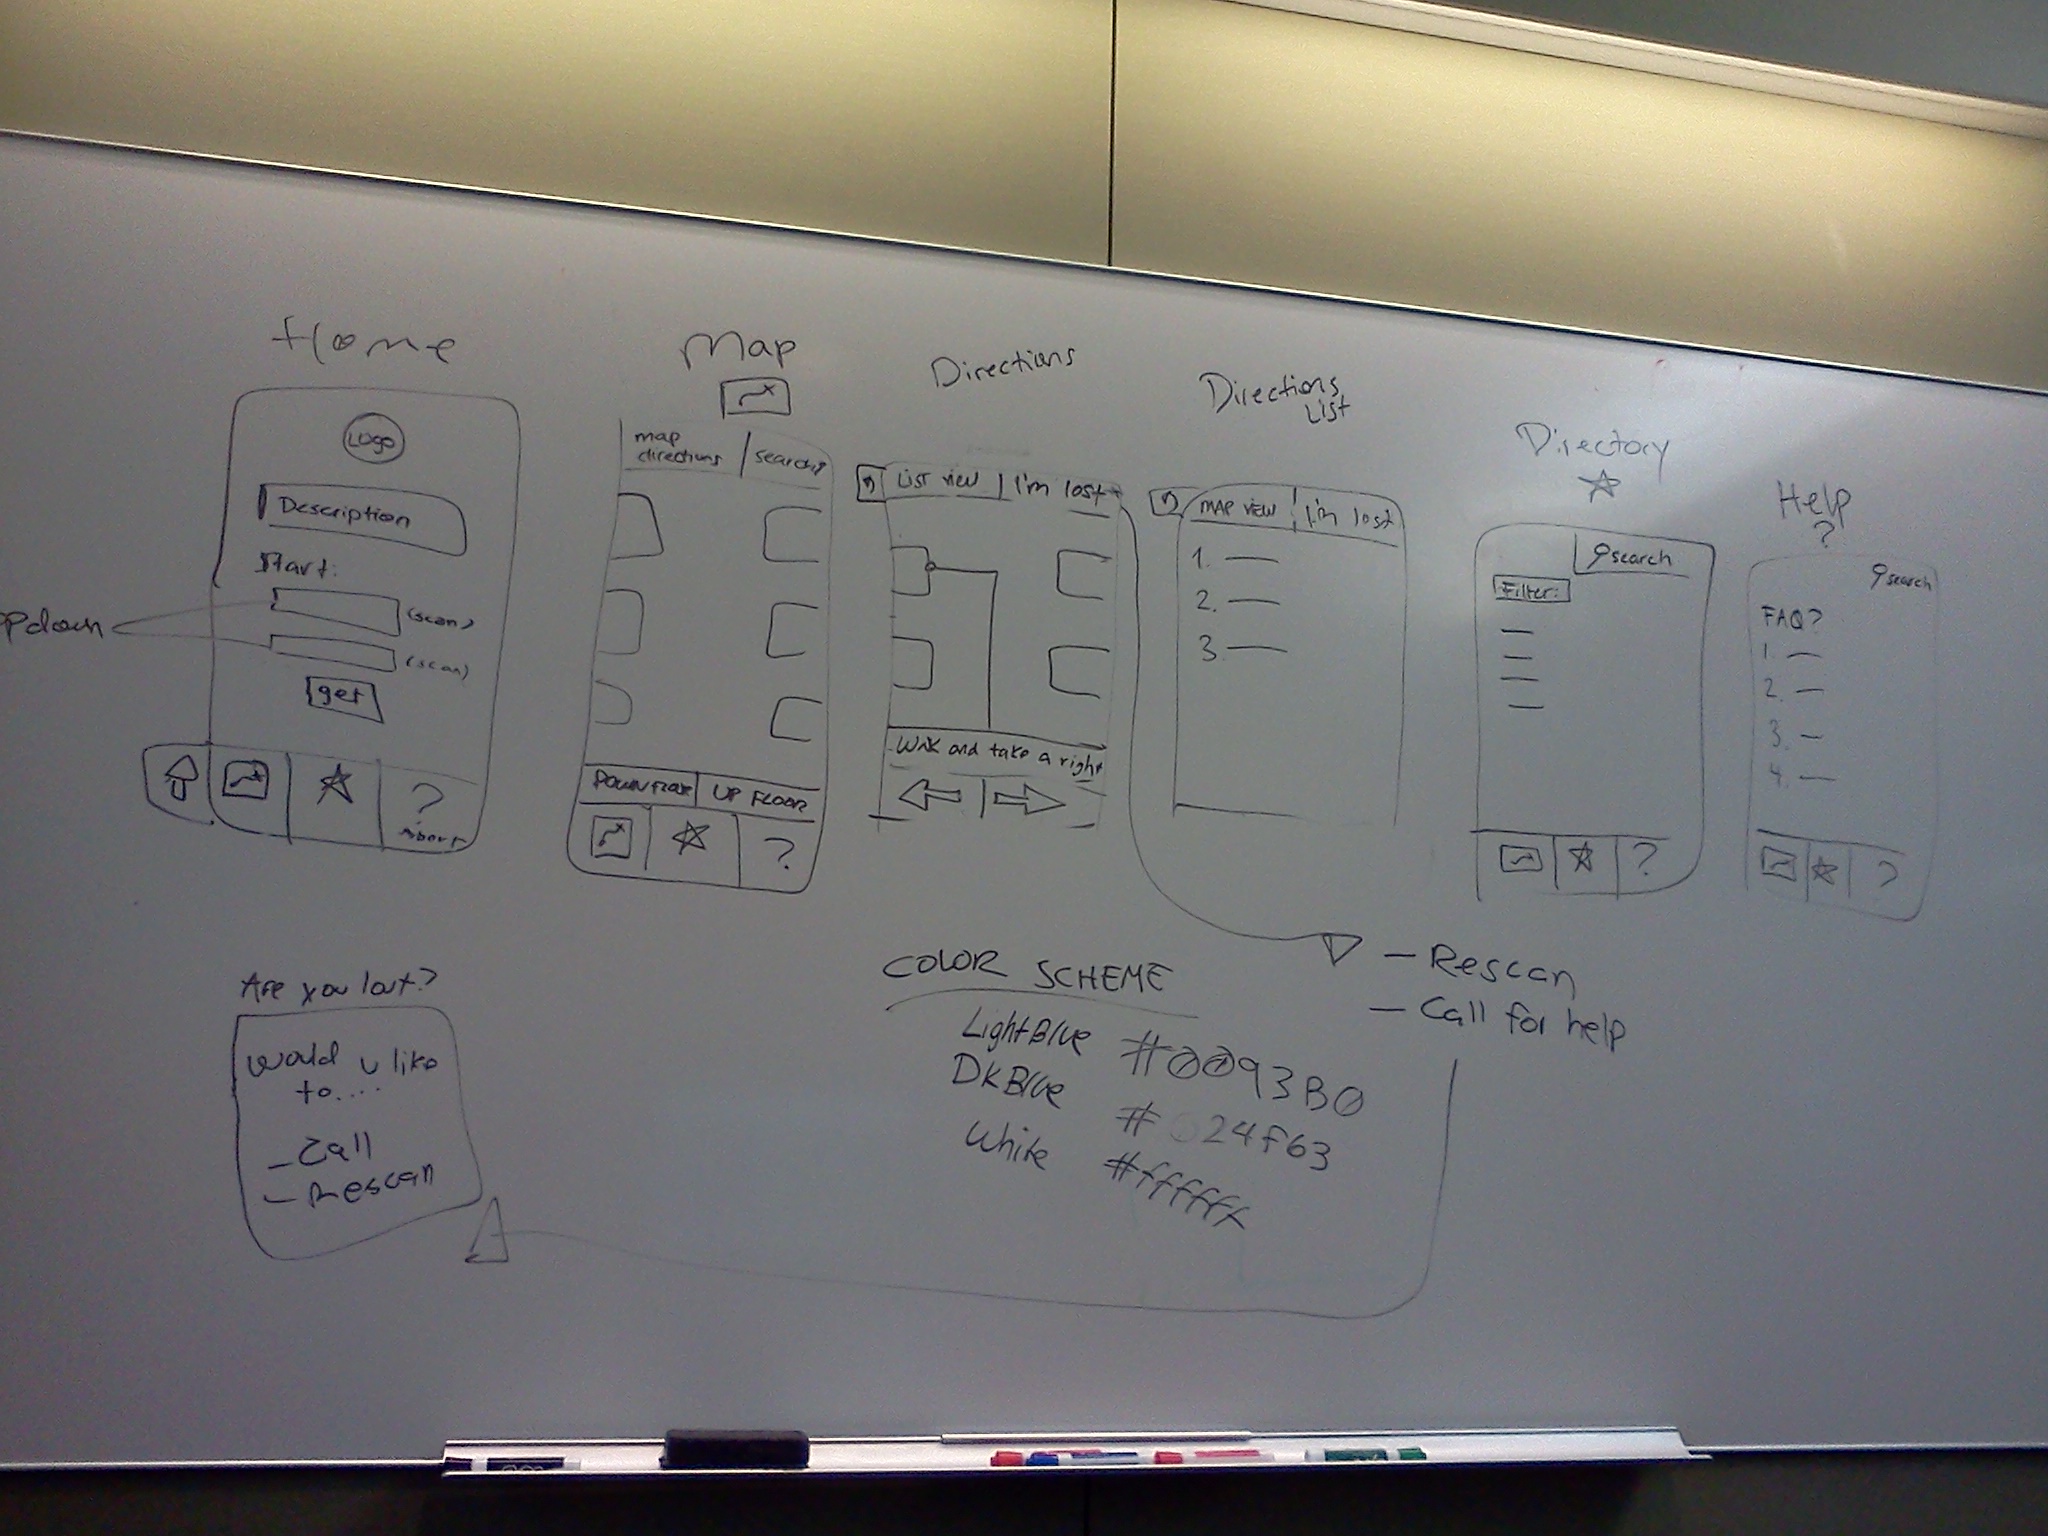 Home
Logo
Description
Start:
(scan)
pdown
(scan)
get
?
About
Map
map
directions
search
DOWN FLOOR
UP FLOOR
?
Directions
List view
I'm lost
Walk and take a right
Directions
List
MAP VIEW
I'm lost
1.
2.
3.
Directory
search
Filter:
?
Help
?
search
FAQ?
1.
2.
3.
4.
?
Are you lost?
Would u like
to....
- Call
- Rescan
COLOR SCHEME
LightBlue #0093B0
DKBlue # 24f63
White #ffffff
- Rescan
- Call for help